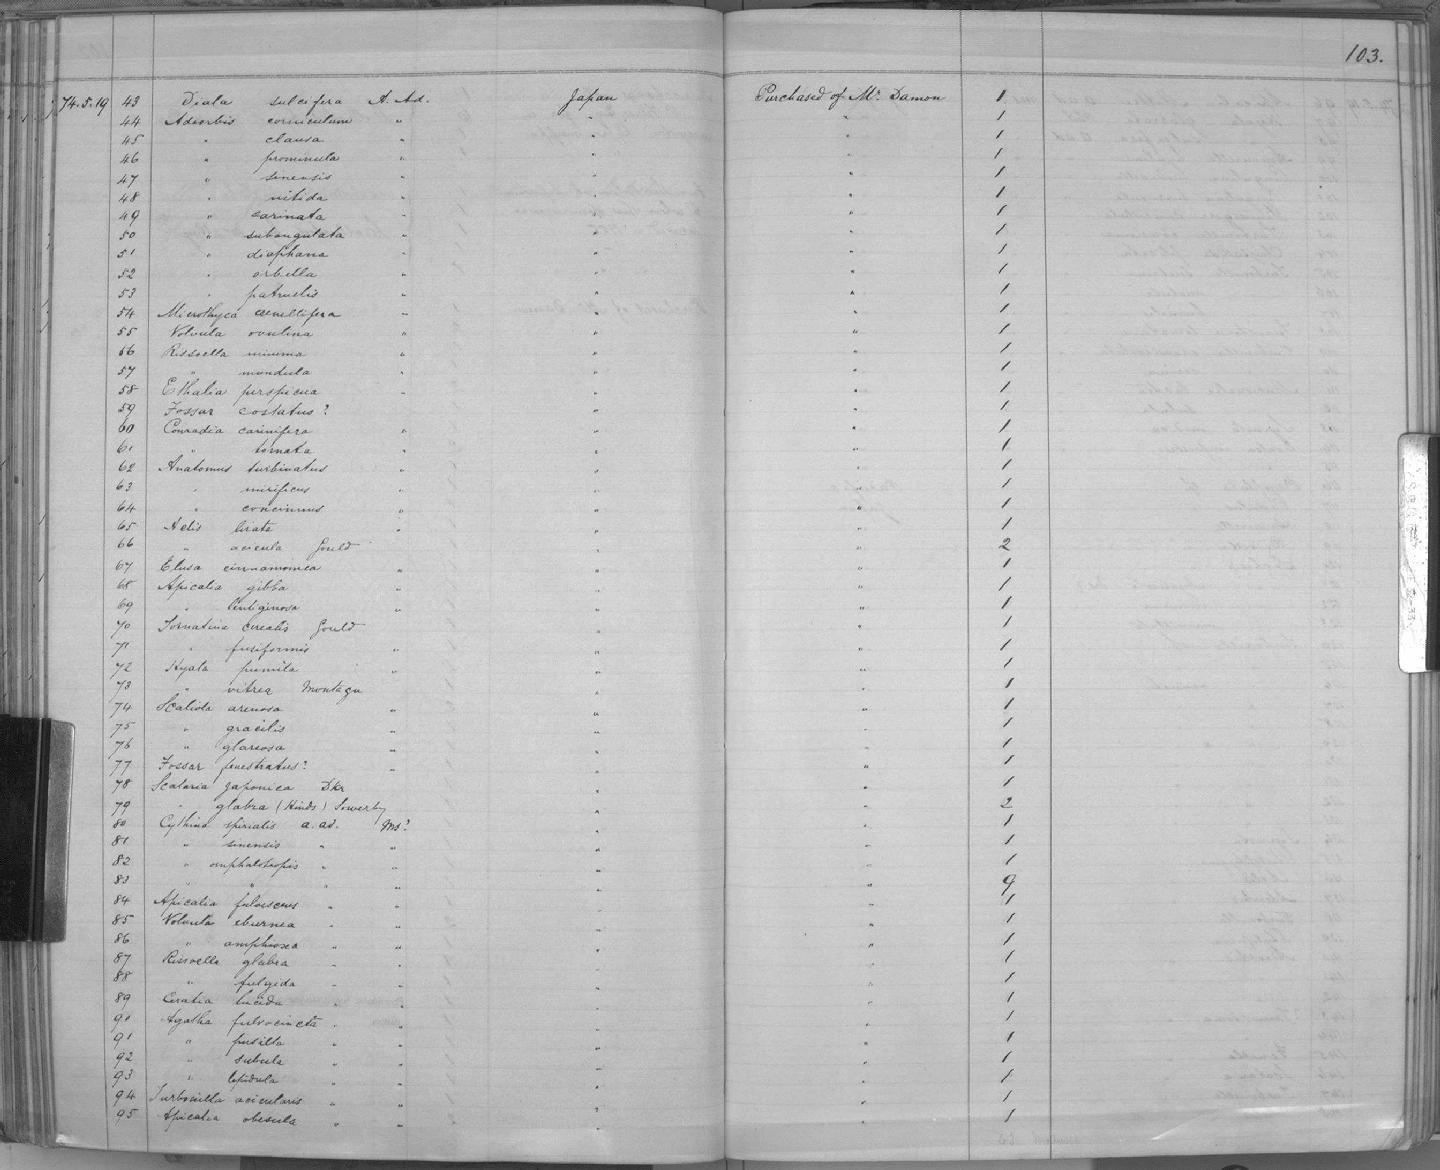 103.
74.5.19 43 Diala sulcifera A. Ad. Japan Purchased of Mr. Damon 1
44 Adeorbis corniculum " " " 1
45 " clausa " " " 1
46 " prominula " " " 1
47 " sinensis " " " 1
48 " nitida " " " 1
49 " carinata " " " 1
50 " subangulata " " " 1
51 " diaphana " " " 1
52 " orbella " " " 1
53 " patruelis " " " 1
54 Microthyca crenellifera " " " 1
55 Volvula ovulina " " " 1
56 Rissoella minima " " " 1
57 " mundula " " " 1
58 Ethalia perspicua " " " 1
59 Fossar costatus? " " 1
60 Conradia carinifera " " " 1
61 " tornata " " " 1
62 Anatomus turbinatus " " " 1
63 " mirificus " " " 1
64 " concinnus " " " 1
65 Aclis lirata " " " 1
66 " acicula Gould " " 2
67 Elusa cinnamomea " " " 1
68 Apicalia gibba " " " 1
69 " lentiginosa " " " 1
70 Tornatina cerealis Gould " " 1
71 " fusiformis " " " 1
72 Hyala pumila " " " 1
73 " vitrea Montagu " " 1
74 Scaliola arenosa " " " 1
75 " gracilis " " " 1
76 " glareosa " " " 1
77 Fossar fenestratus? " " " 1
78 Scalaria japonica Dkr " " 1
79 " glabra (Hinds) Sowerby " " 2
80 Cythina spiralis A. Ad. Ms? " " 1
81 " sinensis " " " " 1
82 " omphalotropis " " " " 1
83 " " " " " " 9
84 Apicalia fulvescens " " " 1
85 Volvula eburnea " " " " 1
86 " amphioxa " " " " 1
87 Rissoella glabra " " " " 1
88 " fulgida " " " " 1
89 Ceratia lucida " " " " 1
90 Agatha fulvocincta " " " " 1
91 " pusilla " " " " 1
92 " subula " " " " 1
93 " lepidula " " " " 1
94 Turbonilla acicularis " " " " 1
95 Apicalia obesula " " " " 1